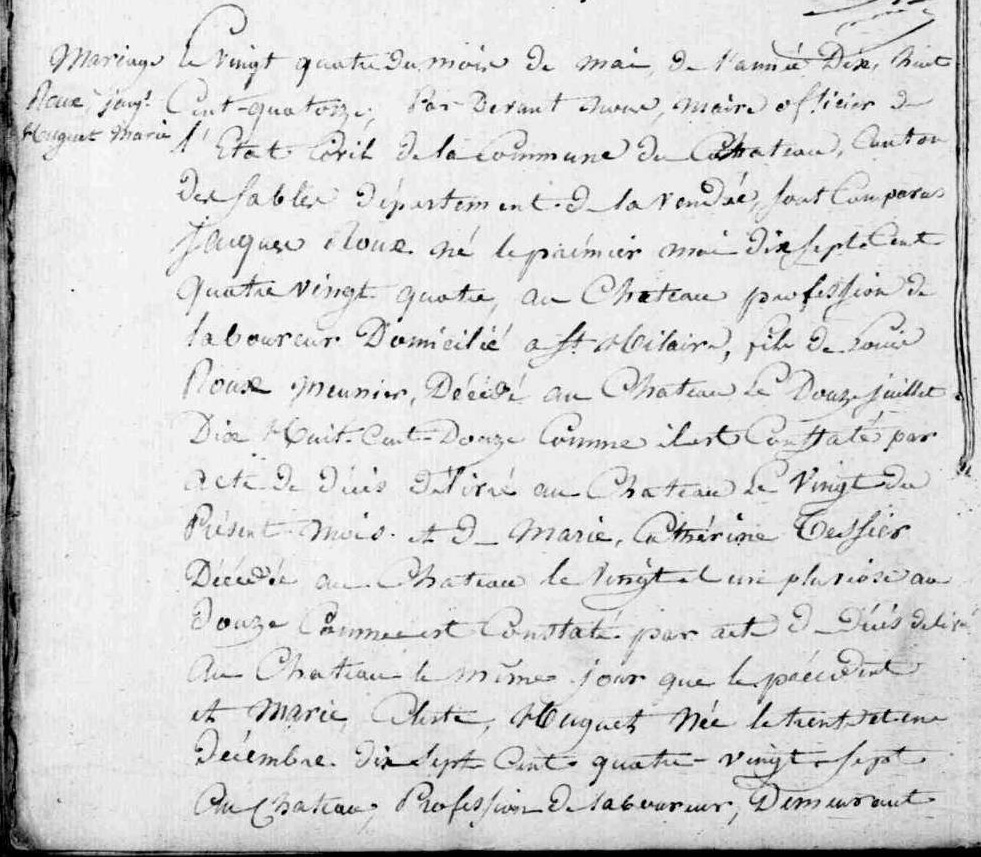 Mariage
Roux, Jacqs
Huguet Marie
Le Vingt quatre du mois de mai, de l'année Dix, huit
Cent-quatorze, Par Devant nous, maire officier de
l'Etat Civil de la Commune du Chateau, Canton
des Sables département de la Vendée, sont Comparus
Jacques Roux né le prémier mai dix sept Cent
quatre vingt quatre, au Chateau profession de
laboureur Domicilié a St Hilaire, fils de Louis
Roux Meunier, Décédé au Chateau Le Douze juillet
Dix Huit Cent Douze Comme il est Constaté par
acte de décès délivré au Chateau Le Vingt du
Présent mois et de Marie, Cathérine Tessier
Décédée au Chateau le Vingt et un pluviose an
Douze Comme est Constaté par acte de Décès délivré
au Chateau le même jour que le précédent
et Marie, Celeste, Huguet Née le trente et un
Décembre dix Sept Cent quatre-vingt-sept
au Chateau, Profession de laboureur, Demeurant